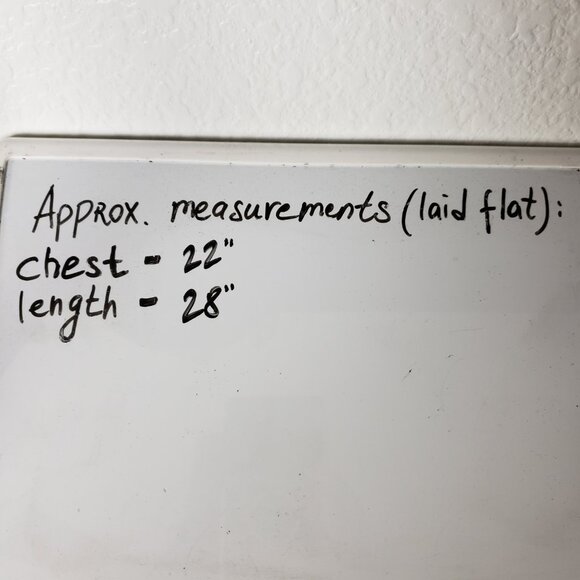 Approx. measurements (laid flat):
chest - 22"
length - 28"